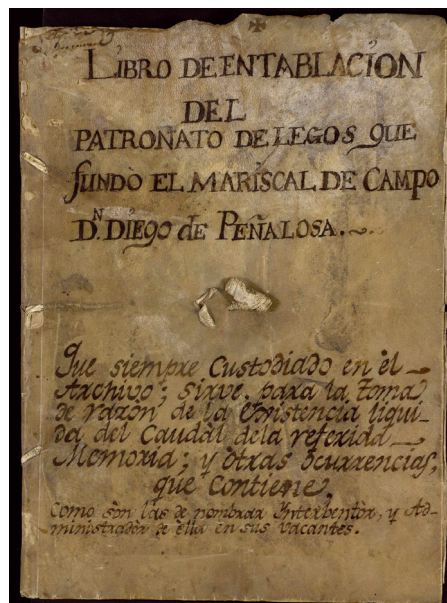 LIBRO DE ENTABLACION
DEL
PATRONATO DE LEGOS que
fundò EL MARISCAL DE CAMPO
D.N DIEGO de PEÑALOSA.
Que siempre Custodiado en el
Archivo; sirve para la toma
de razòn de la Existencia liqui-
da del Caudàl dela referida
Memoria; y òtras òcurrencias,
que Contiene.
Como sòn làs de nombrar Interbentòr, y Ad-
ministradòr de ella en sus vacantes.